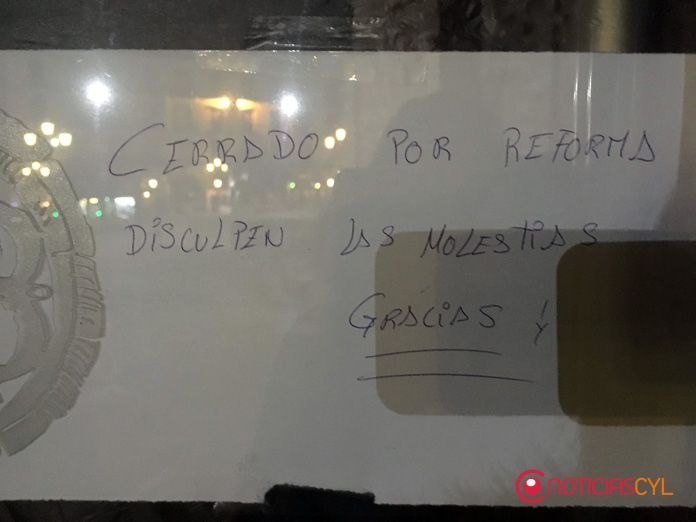 CERRADO POR REFORMA
DISCULPEN LAS MOLESTIAS
GRACIAS
NOTICIASCYL